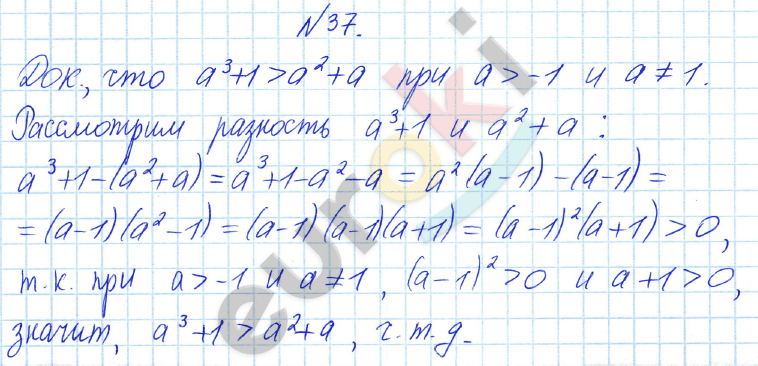 №37.
Док., что a³+1>a²+a при a>-1 и a≠1.
Рассмотрим разность a³+1 и a²+a :
a³+1-(a²+a)=a³+1-a²-a = a²(a-1)-(a-1)=
=(a-1)(a²-1)=(a-1)(a-1)(a+1)=(a-1)²(a+1)>0,
т.к. при a>-1 и a≠1, (a-1)²>0 и a+1>0,
значит, a³+1>a²+a, ч.т.д.
euroki